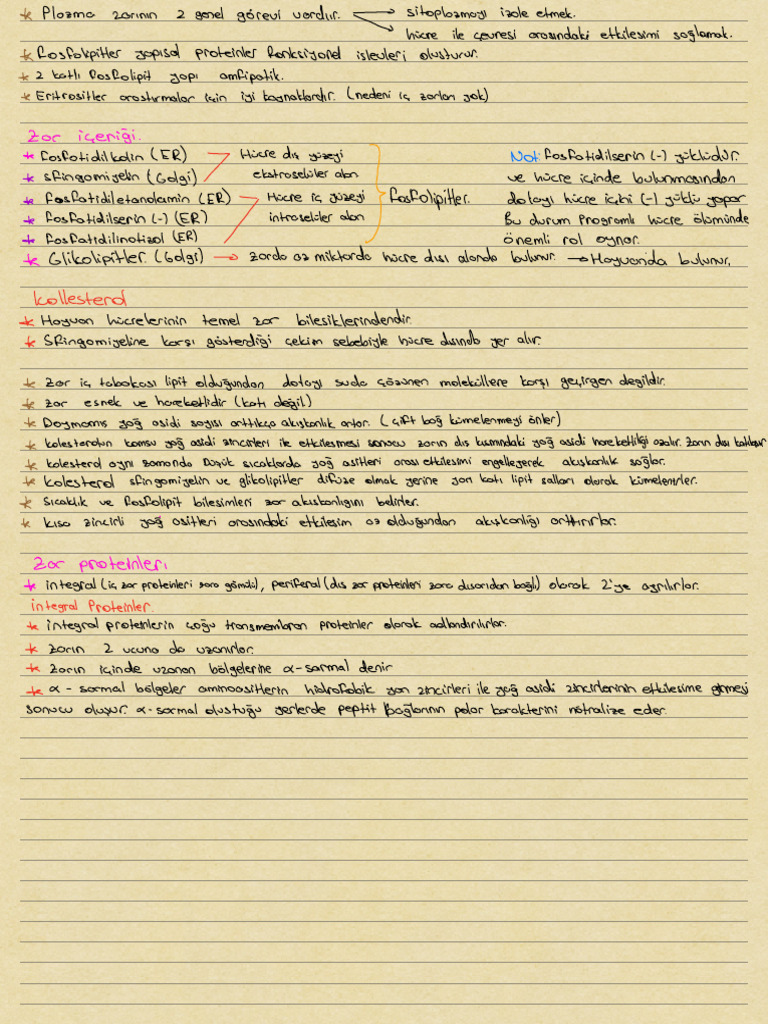 * Plazma zarının 2 genel görevi vardır. → sitoplazmayı izole etmek.
→ hücre ile çevresi arasındaki etkileşimi sağlamak.
* Fosfolipitler yapısal proteinler fonksiyonel işlevleri oluşturur.
* 2 katlı fosfolipit yapı amfipatik.
* Eritrositler araştırmalar için iyi kaynaklardır. (nedeni iç zarları yok)
Zar içeriği.
* fosfatidilkolin (ER) Hücre dış yüzeyi
* sfingomiyelin (Golgi) ekstraselüler alan
* fosfatidiletanolamin (ER) Hücre iç yüzeyi fosfolipitler.
* fosfatidilserin (-) (ER) intraselüler alan
* fosfatidilinotizol (ER)
Not: fosfatidilserin (-) yüklüdür.
ve hücre içinde bulunmasından
dolayı hücre içini (-) yüklü yapar
Bu durum programlı hücre ölümünde
önemli rol oynar.
* Glikolipitler. (Golgi) → zarda az miktarda hücre dışı alanda bulunur. → Hayvanda bulunur.
kollesterol
* Hayvan hücrelerinin temel zar bileşiklerindendir.
* Sfingomiyeline karşı gösterdiği çekim sebebiyle hücre dışında yer alır.
* Zar iç tabakası lipit olduğundan dolayı suda çözünen moleküllere karşı geçirgen değildir.
* zar esnek ve hareketlidir (katı değil)
* Doymamış yağ asidi sayısı arttıkça akışkanlık artar. (çift bağ kümelenmeyi önler)
* kolesterolün komşu yağ asidi zincirleri ile etkileşmesi sonucu zarın dış kısmındaki yağ asidi hareketliliği azalır. Zarın dışı katılaşır
* kolesterol aynı zamanda Düşük sıcaklarda yağ asitleri arası etkileşimi engelleyerek akışkanlık sağlar.
* kolesterol sfingomiyelin ve glikolipitler difüze olmak yerine yarı katı lipit salları olarak kümelenirler.
* Sıcaklık ve fosfolipit bileşimleri zar akışkanlığını belirler.
* kısa zincirli yağ asitleri arasındaki etkileşim az olduğundan akışkanlığı arttırırlar.
Zar proteinleri
* integral (iç zar proteinleri zara gömülü), periferal (dış zar proteinleri zara dışarıdan bağlı) olarak 2'ye ayrılırlar.
integral Proteinler.
* integral proteinlerin çoğu transmembran proteinler olarak adlandırılırlar.
* zarın 2 ucuna da uzanırlar.
* zarın içinde uzanan bölgelerine α-sarmal denir
* α - sarmal bölgeler aminoasitlerin hidrofobik yan zincirleri ile yağ asidi zincirlerinin etkileşime girmesi
sonucu oluşur. α-sarmal oluştuğu yerlerde peptit bağlarının polar karakterini nötralize eder.